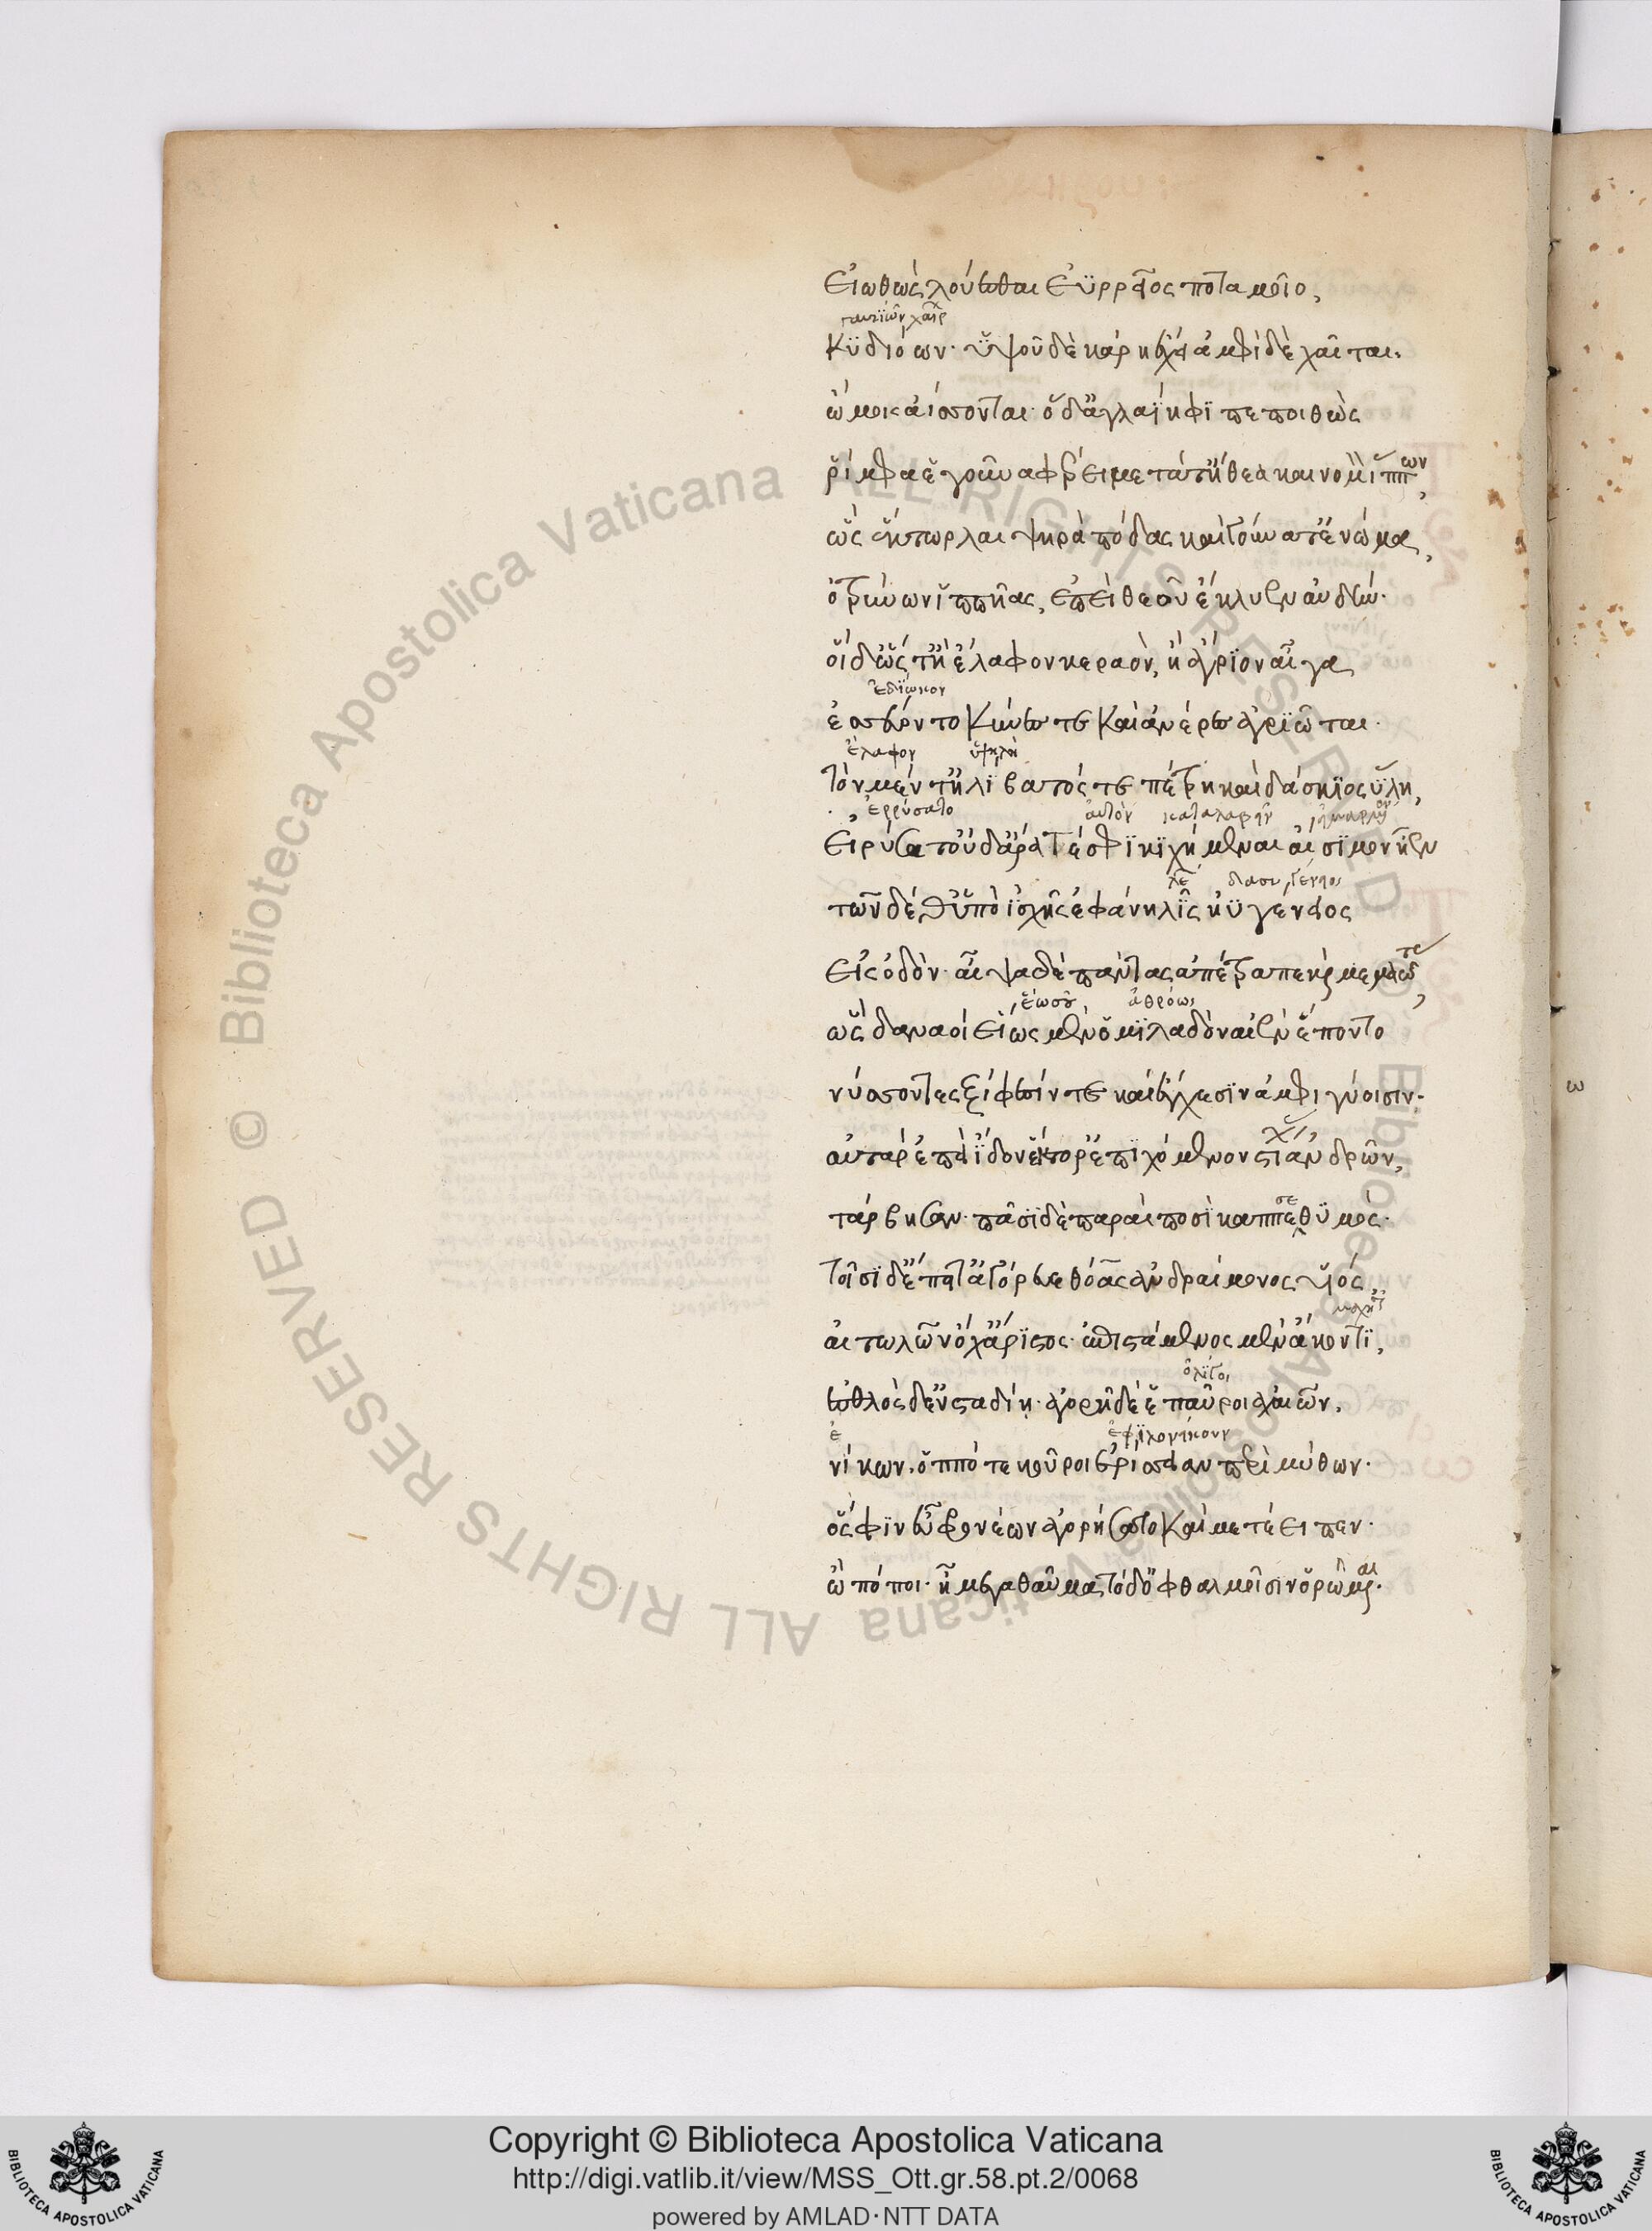 εἰωθὼς λούεσθαι ἐϋρρεῖος ποταμοῖο,
κυδιόων· ὑψοῦ δὲ κάρη ἔχει ἀμφὶ δὲ χαῖται·
ὤμοις ἀΐσσονται· ὁ δ' ἀγλαΐηφι πεποιθὼς
ῥίμφα ἑ γοῦνα φέρει μετά τ' ἤθεα καὶ νομὸν ἵππων,
ὣς ἕκτωρ λαιψηρὰ πόδας καὶ γούνατ' ἐνώμα,
ὀτρύνων ἱππῆας, ἐπεὶ θεοῦ ἔκλυεν αὐδήν·
οἱ δ' ὥς τ' ἢ ἔλαφον κεραὸν, ἢ ἄγριον αἶγα
ἐδίωκον
ἐσσεύοντο κύνες τε καὶ ἀνέρες ἀγριῶται·
ἔλαφον ὑψηλὴ
τὸν μέν τ' ἠλίβατός τε πέτρη καὶ δάσκιος ὕλη,
ἐρρύσατο αὐτὸν καταλαβεῖν
εἰρύσατ' οὐδ' ἄρα τέ σφι κιχήμεναι αἴσιμον ἦεν
τῶν δέ θ' ὑπὸ ἰαχῆς ἐφάνη λὶς ἠϋγένειος
εἰς ὁδὸν· αἶψα δὲ πάντας ἀπέτραπε καὶ μεμαῶτας,
ἕως οὗ ἀθρόως
ὣς δαναοὶ εἵως μὲν ὁμιλαδὸν αἰὲν ἕποντο
νύσσοντες ξίφεσίν τε καὶ ἔγχεσιν ἀμφιγύοισιν·
αὐτὰρ ἐπεὶ ἴδον ἕκτορ' ἐποιχόμενον στίχας ἀνδρῶν,
τάρβησαν· πᾶσι δὲ παραὶ ποσὶ κάππεσε θυμός·
τοῖσι δ' ἔπειτ' ἀγόρευε θόας ἀνδραίμονος υἱός,
αἰτωλῶν ὄχ' ἄριστος· ἐπιστάμενος μὲν ἄκοντι,
ὀλίγοι
ἐσθλὸς δ' ἐν σταδίῃ· ἀγορῇ δέ ἑ παῦροι ἀχαιῶν,
ἐφιλονίκουν
νίκων, ὁππότε κοῦροι ἐρίσσειαν περὶ μύθων·
ὅς σφιν ἐϋφρονέων ἀγορήσατο καὶ μετέειπεν·
ὢ πόποι· ἦ μέγα θαῦμα τόδ' ὀφθαλμοῖσιν ὁρῶμαι·
ω
BIBLIOTECA APOSTOLICA VATICANA
Copyright © Biblioteca Apostolica Vaticana
http://digi.vatlib.it/view/MSS_Ott.gr.58.pt.2/0068
powered by AMLAD·NTT DATA
BIBLIOTECA APOSTOLICA VATICANA
© Biblioteca Apostolica Vaticana ALL RIGHTS RESERVED
© Biblioteca Apostolica Vaticana ALL RIGHTS RESERVED